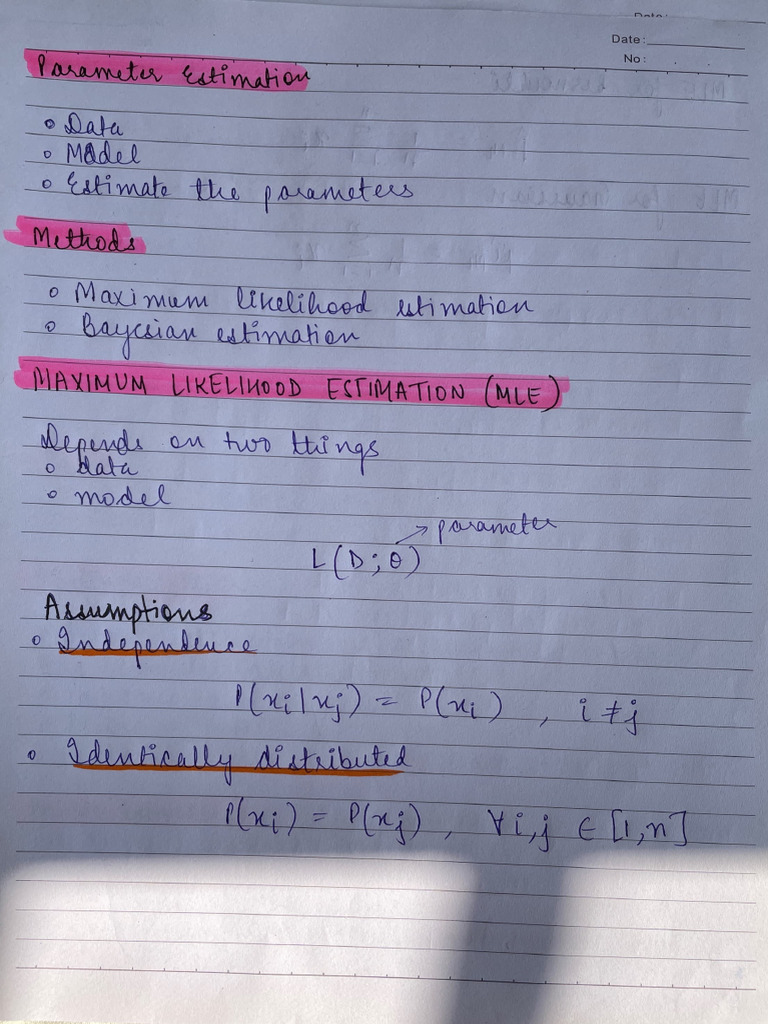 Date:
No:
Parameter Estimation
o Data
o Model
o Estimate the parameters
Methods
o Maximum likelihood estimation
o Bayesian estimation
MAXIMUM LIKELIHOOD ESTIMATION (MLE)
Depends on two things
o data
o model
→ parameter
L(D;θ)
Assumptions
o Independence
P(xi|xj) = P(xi) , i ≠ j
o Identically distributed
P(xi) = P(xj) , ∀i,j ∈ [1,n]